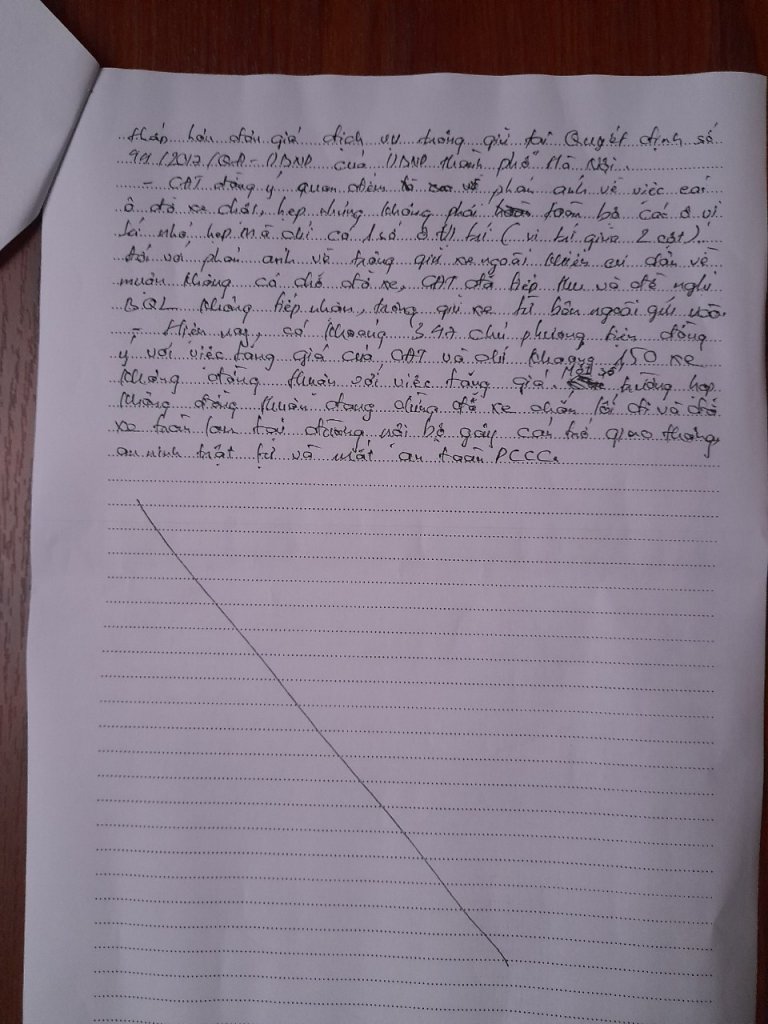 thấp hơn đơn giá dịch vụ trông giữ tại Quyết định số
44/2017/QĐ-UBND của UBND thành phố Hà Nội.
- CAT đồng ý quan điểm phản ánh về việc các
ô đỗ xe chật, hẹp nhưng không phải toàn bộ các ô vị
trí nhỏ hẹp mà chỉ có 1 số ở vị trí (vị trí giữa 2 cột).
Đối với phản ánh về trông giữ xe ngoài khiến cư dân về
muộn không có chỗ đỗ xe, CAT đã tiếp thu và đề nghị
BQL không tiếp nhận, trông giữ xe từ bên ngoài gửi vào.
- Hiện nay, có khoảng 347 chủ phương tiện đồng
ý với việc tăng giá của CAT và chỉ khoảng 150 xe
không đồng thuận với việc tăng giá. Một số trường hợp
không đồng thuận đang dừng đỗ xe chắn lối đi và đỗ
xe tràn lan tại đường nội bộ gây cản trở giao thông,
an ninh trật tự và mất an toàn PCCC.